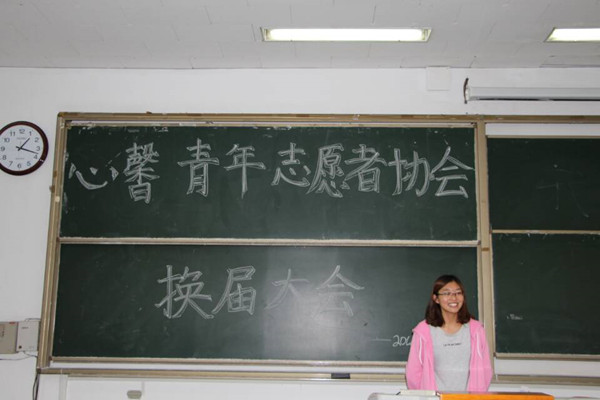 心馨 青年志愿者协会
换届大会